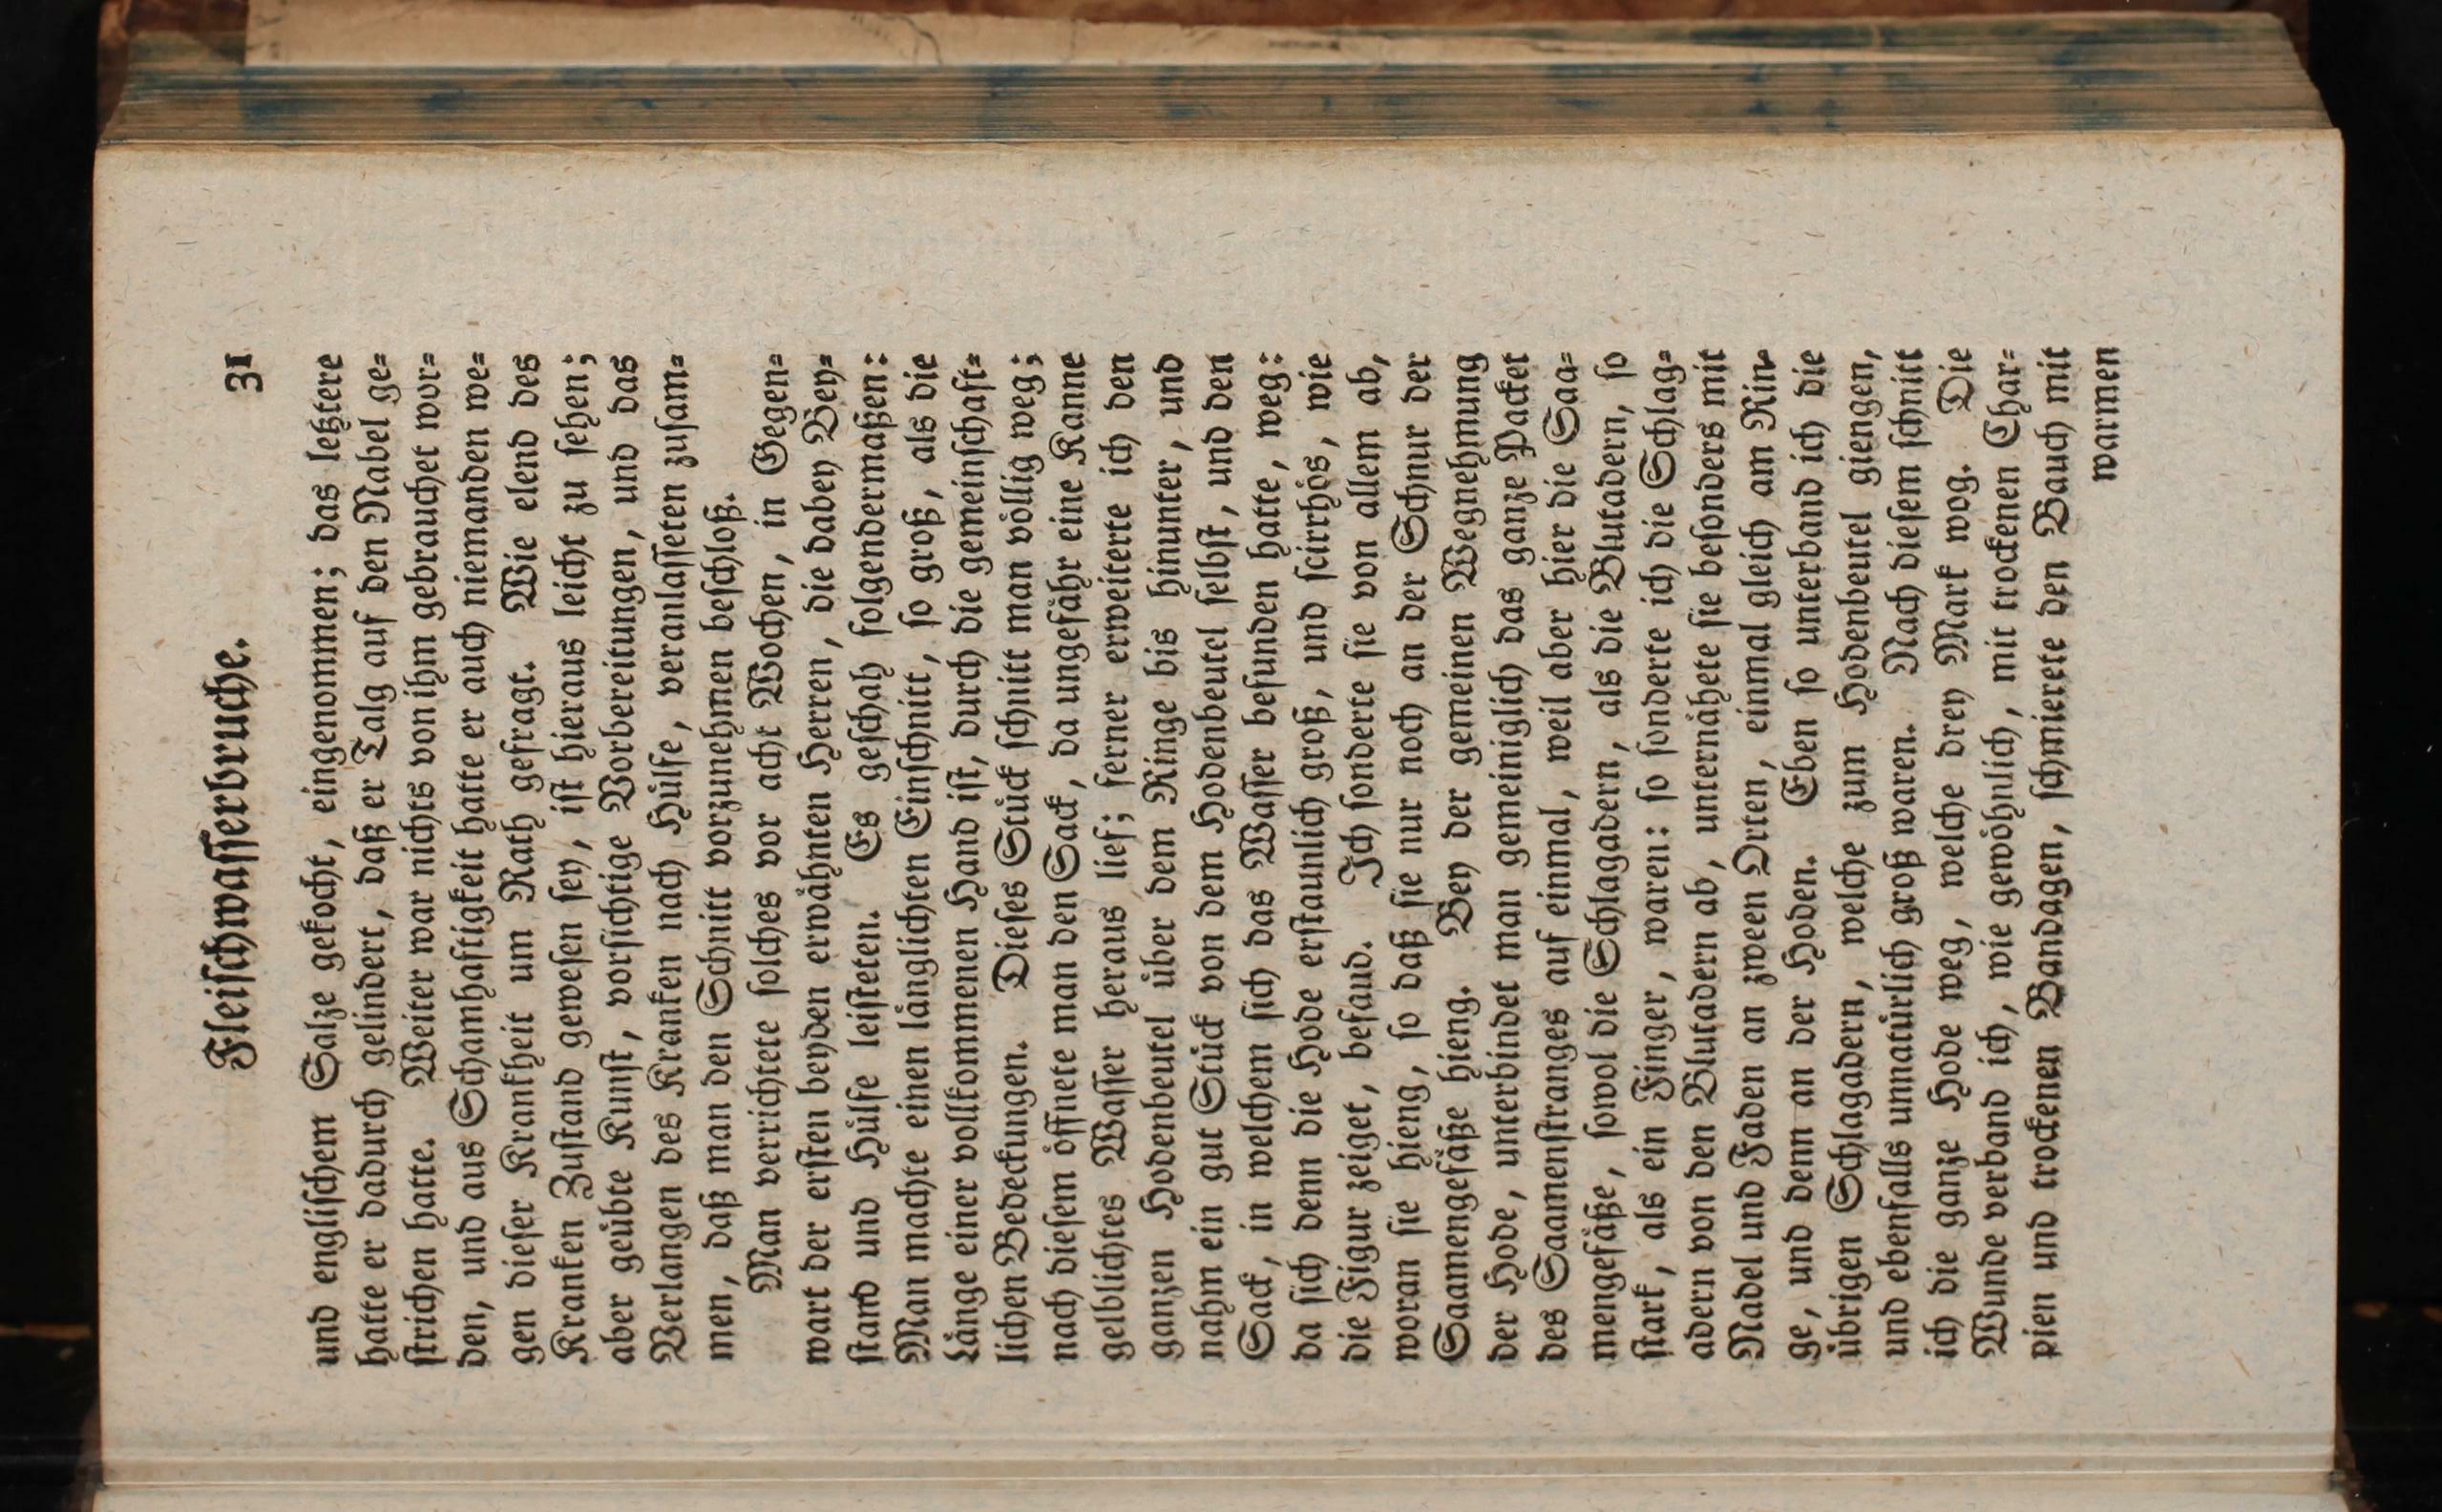 Fleiſchwaſſerbruche. 31
und engliſchem Salze gekocht, eingenommen; das letztere
hatte er dadurch gelindert, daß er Talg auf den Nabel ge⸗
ſtrichen hatte. Weiter war nichts von ihm gebrauchet wor⸗
den, und aus Schamhaftigkeit hatte er auch niemanden we⸗
gen dieſer Krankheit um Rath gefragt. Wie elend des
Kranken Zuſtand geweſen ſey, iſt hieraus leicht zu ſehen;
aber geuͤbte Kunſt, vorſichtige Vorbereitungen, und das
Verlangen des Kranken nach Huͤlfe, veranlaſſeten zuſam⸗
men, daß man den Schnitt vorzunehmen beſchloß.
Man verrichtete ſolches vor acht Wochen, in Gegen⸗
wart der erſten beyden erwaͤhnten Herren, die dabey Bey⸗
ſtand und Huͤlfe leiſteten. Es geſchah folgendermaßen:
Man machte einen laͤnglichten Einſchnitt, ſo groß, als die
Laͤnge einer vollkommenen Hand iſt, durch die gemeinſchaft⸗
lichen Bedeckungen. Dieſes Stuͤck ſchnitt man voͤllig weg;
nach dieſem oͤffnete man den Sack, da ungefaͤhr eine Kanne
gelblichtes Waſſer heraus lief; ferner erweiterte ich den
ganzen Hodenbeutel uͤber dem Ringe bis hinunter, und
nahm ein gut Stuͤck von dem Hodenbeutel ſelbſt, und den
Sack, in welchem ſich das Waſſer befunden hatte, weg:
da ſich denn die Hode erſtaunlich groß, und ſcirrhoͤs, wie
die Figur zeiget, befand. Ich ſonderte ſie von allem ab,
woran ſie hieng, ſo daß ſie nur noch an der Schnur der
Saamengefaͤße hieng. Bey der gemeinen Wegnehmung
der Hode, unterbindet man gemeiniglich das ganze Packet
des Saamenſtranges auf einmal, weil aber hier die Saa⸗
mengefaͤße, ſowol die Schlagadern, als die Blutadern, ſo
ſtark, als ein Finger, waren: ſo ſonderte ich die Schlag⸗
adern von den Blutadern ab, unternaͤhete ſie beſonders mit
Nadel und Faden an zween Orten, einmal gleich am Rin⸗
ge, und denn an der Hoden. Eben ſo unterband ich die
uͤbrigen Schlagadern, welche zum Hodenbeutel giengen,
und ebenfalls unnatuͤrlich groß waren. Nach dieſem ſchnitt
ich die ganze Hode weg, welche drey Mark wog. Die
Wunde verband ich, wie gewoͤhnlich, mit trockenen Char⸗
pien und trockenen Bandagen, ſchmierete den Bauch mit
warmen